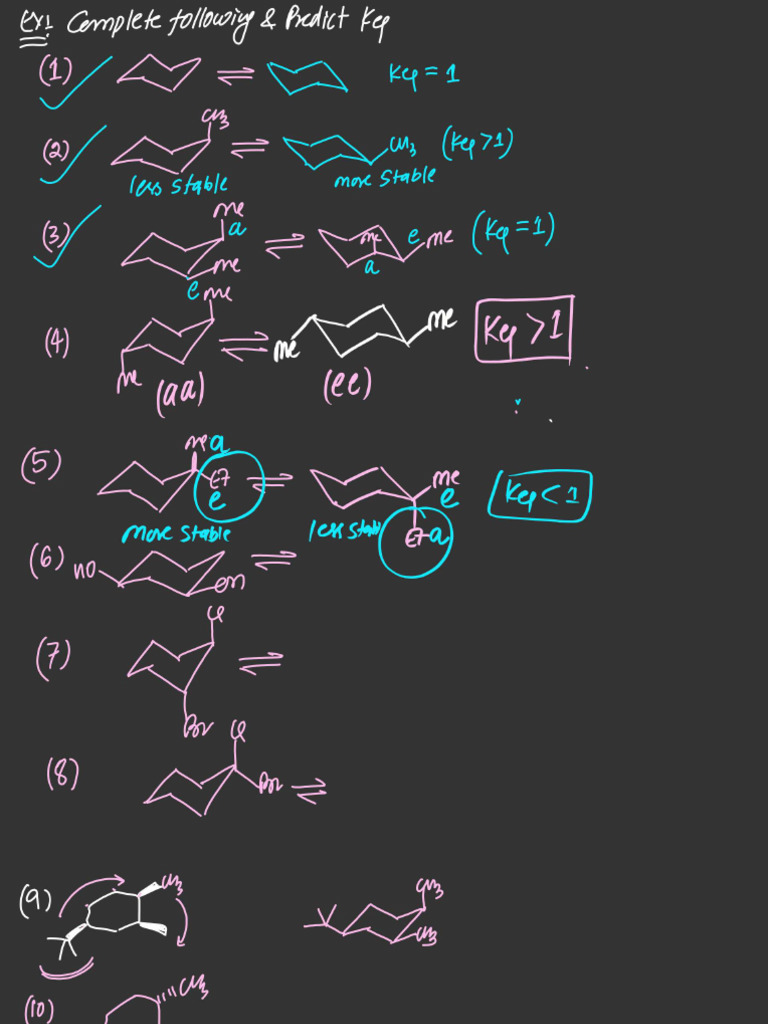 Ex: Complete following & Predict Keq
(1) Keq = 1
CH3
(2) CH3 (Keq>1)
less stable more stable
Me
(3) a Me e Me (Keq=1)
Me a
e Me
(4) Me Me Keq > 1
Me (aa) (ee)
Me a
(5) Et Me Keq < 1
e e
more stable less stable Et a
(6) HO OH
Cl
(7)
Br Cl
(8) Br
(9) CH3 CH3
CH3
(10) CH3